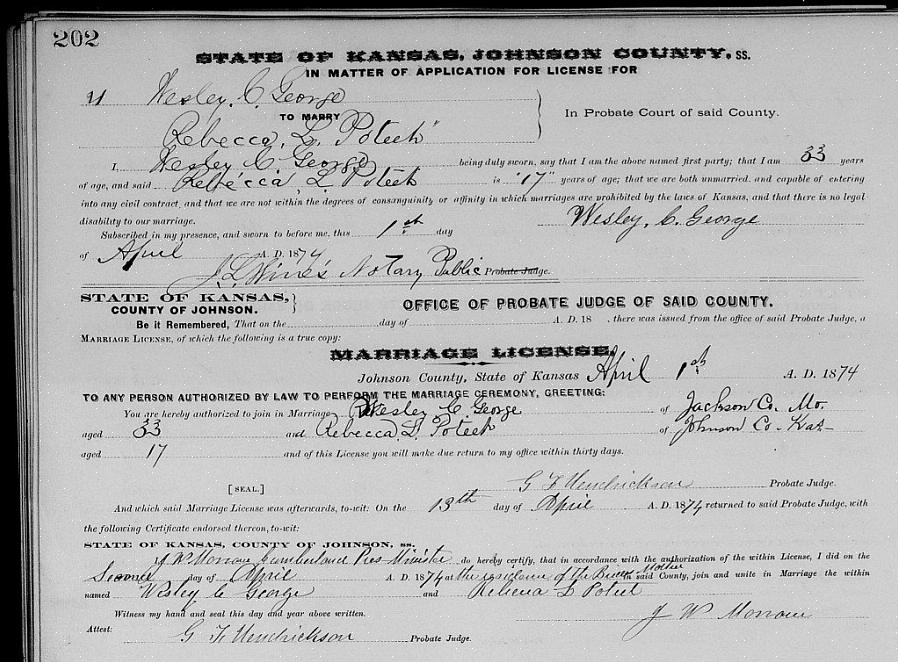 202
STATE OF KANSAS, JOHNSON COUNTY, ss.
IN MATTER OF APPLICATION FOR LICENSE FOR
Wesley. C. George
TO MARRY
In Probate Court of said County.
Rebecca, L. Poteet"
I, Wesley C George being duly sworn, say that I am the above named first party; that I am 33 years
of age, and said Rebecca L Poteet is "17" years of age; that we are both unmarried, and capable of entering
into any civil contract, and that we are not within the degrees of consanguinity or affinity in which marriages are prohibited by the laws of Kansas, and that there is no legal
disability to our marriage. Wesley, C. George
Subscribed in my presence, and sworn to before me, this 1st day
of April A. D. 1874
Notary Public Probate Judge.
STATE OF KANSAS,
COUNTY OF JOHNSON.
OFFICE OF PROBATE JUDGE OF SAID COUNTY.
Be it Remembered, That on the day of A. D. 18 , there was issued from the office of said Probate Judge, a
MARRIAGE LICENSE, of which the following is a true copy:
MARRIAGE LICENSE.
Johnson County, State of Kansas April 1st A. D. 1874
TO ANY PERSON AUTHORIZED BY LAW TO PERFORM THE MARRIAGE CEREMONY, GREETING:
You are hereby authorized to join in Marriage Wesley C. George of Jackson Co, Mo.
aged 33 and Rebecca L. Poteet of Johnson Co - Kas -
aged 17 and of this License you will make due return to my office within thirty days.
[SEAL.] G F Hendrickson Probate Judge.
And which said Marriage License was afterwards, to-wit: On the 13th day of April A. D. 1874 returned to said Probate Judge, with
the following Certificate endorsed thereon, to-wit:
STATE OF KANSAS, COUNTY OF JOHNSON, ss.
J W Morrow Cumberland Pres Minister do hereby certify, that in accordance with the authorization of the within License, I did on the
Second day of April A. D. 1874 at the residence of the Brides Mother in said County, join and unite in Marriage the within
named Wesley C George and Rebecca L Poteet
Witness my hand and seal this day and year above written. J W Morrow
Attest: G F Hendrickson Probate Judge.